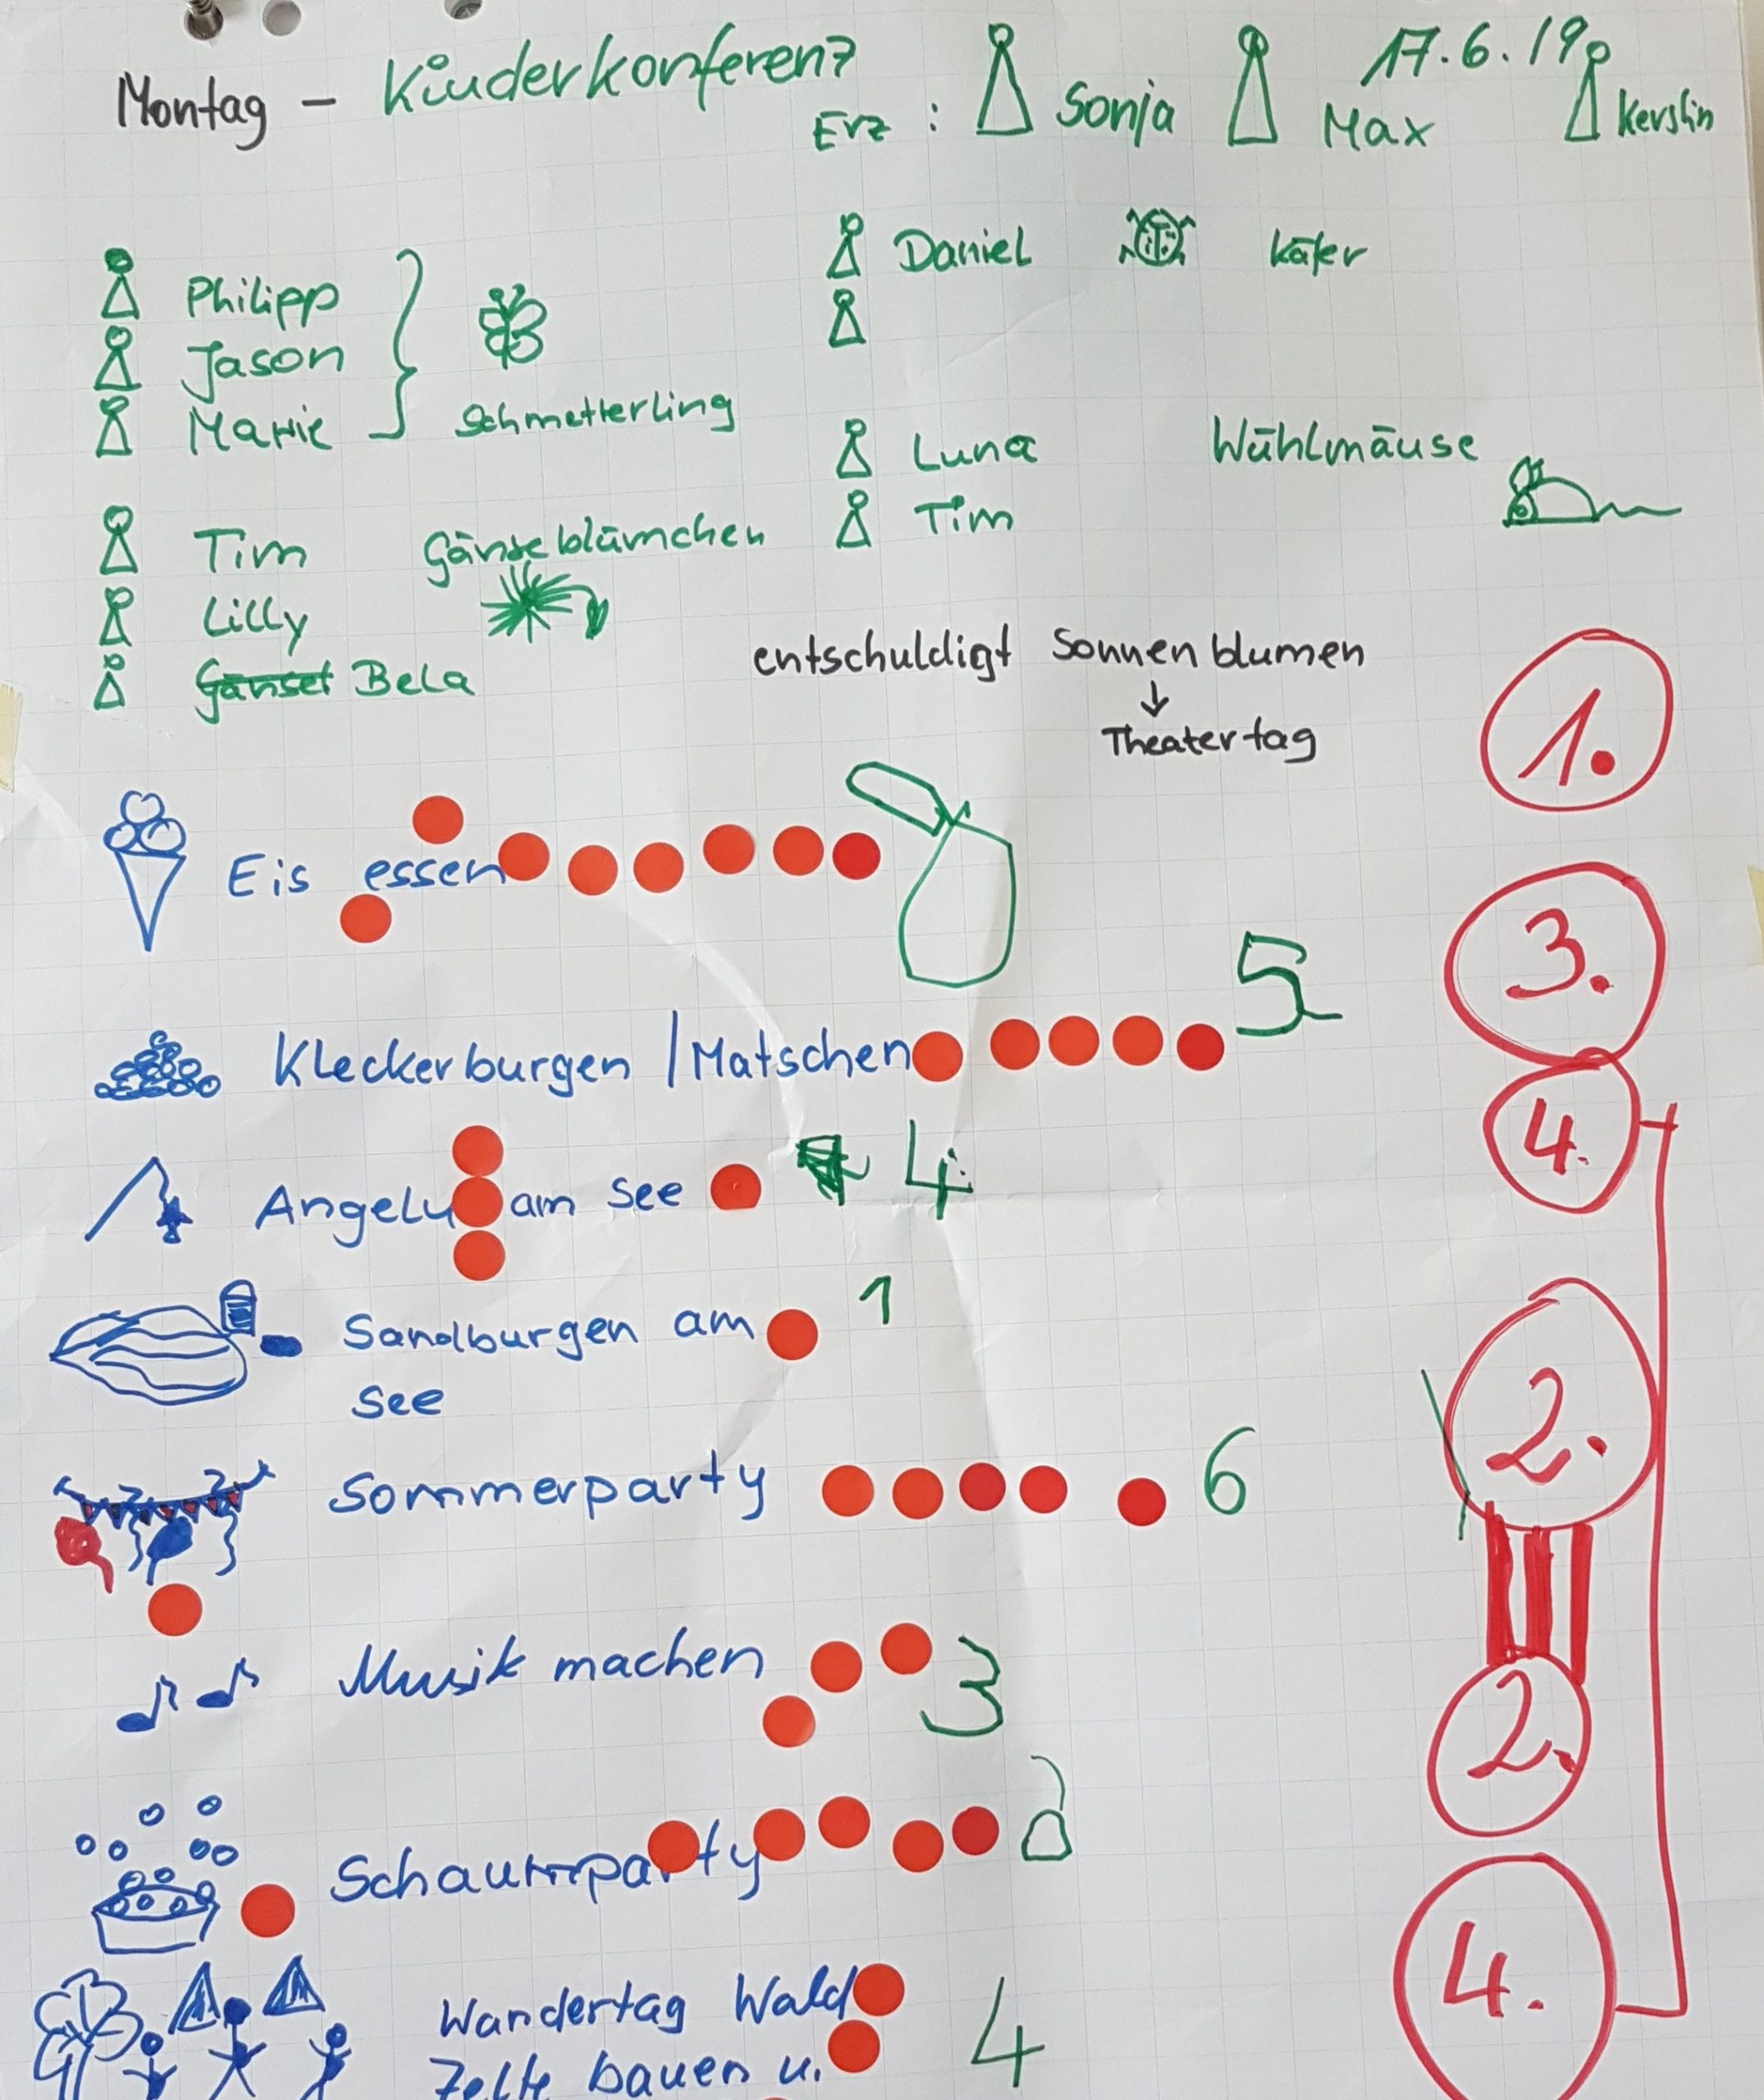 Montag - Kinderkonferenz 17.6.19
Erz : Sonja Max Kerstin
Philipp
Jason
Marie
Schmetterling
Daniel Käfer
Luna Wühlmäuse
Tim
Tim Gänseblümchen
Lilly
Gänset Bela
entschuldigt Sonnenblumen
↓
Theatertag
1.
Eis essen 8
3.
Kleckerburgen / Matschen 5
4.
Angeln am See 4
Sandburgen am 1
See
2.
Sommerparty 6
Musik machen 3
2.
Schaumparty 6
4.
Wandertag Wald 4
Zelte bauen u.